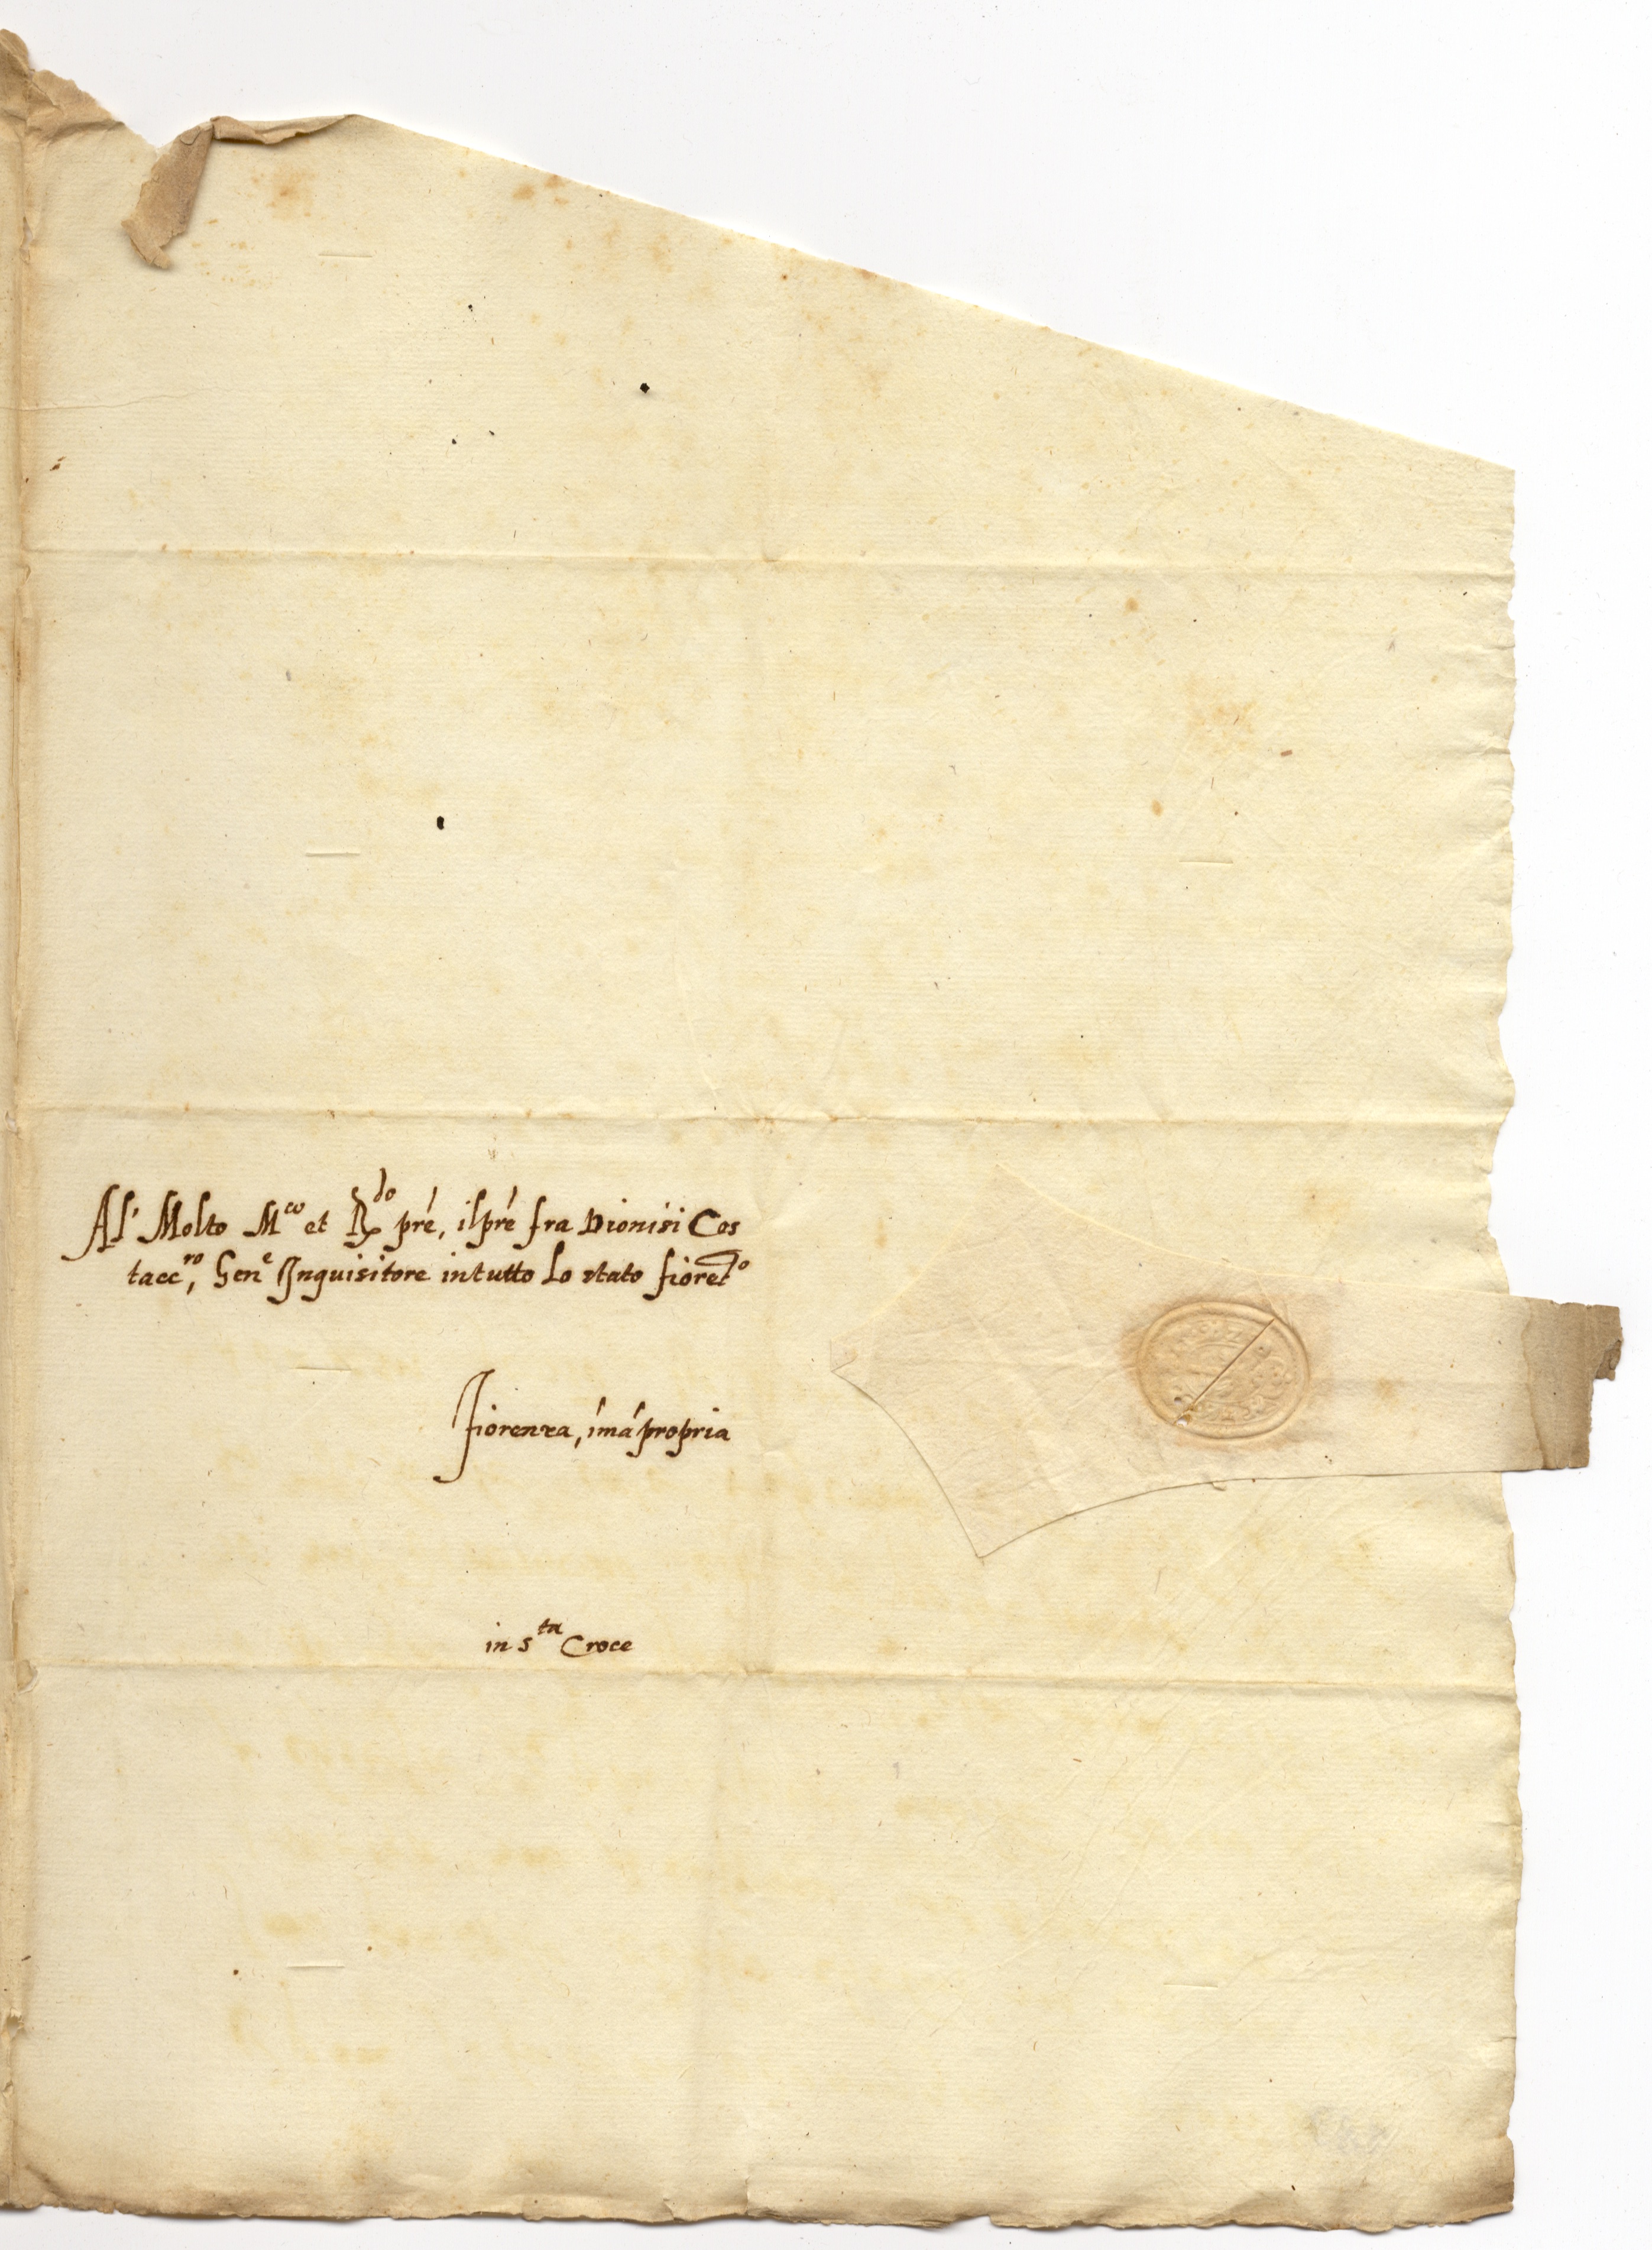 Al' Molto M.co et R.do pre, il pre fra Dionisi Cos
tacc.ro, Gen.e Inquisitore in tutto lo stato fioret.o
Fiorenza, i ma propria
in S.ta Croce